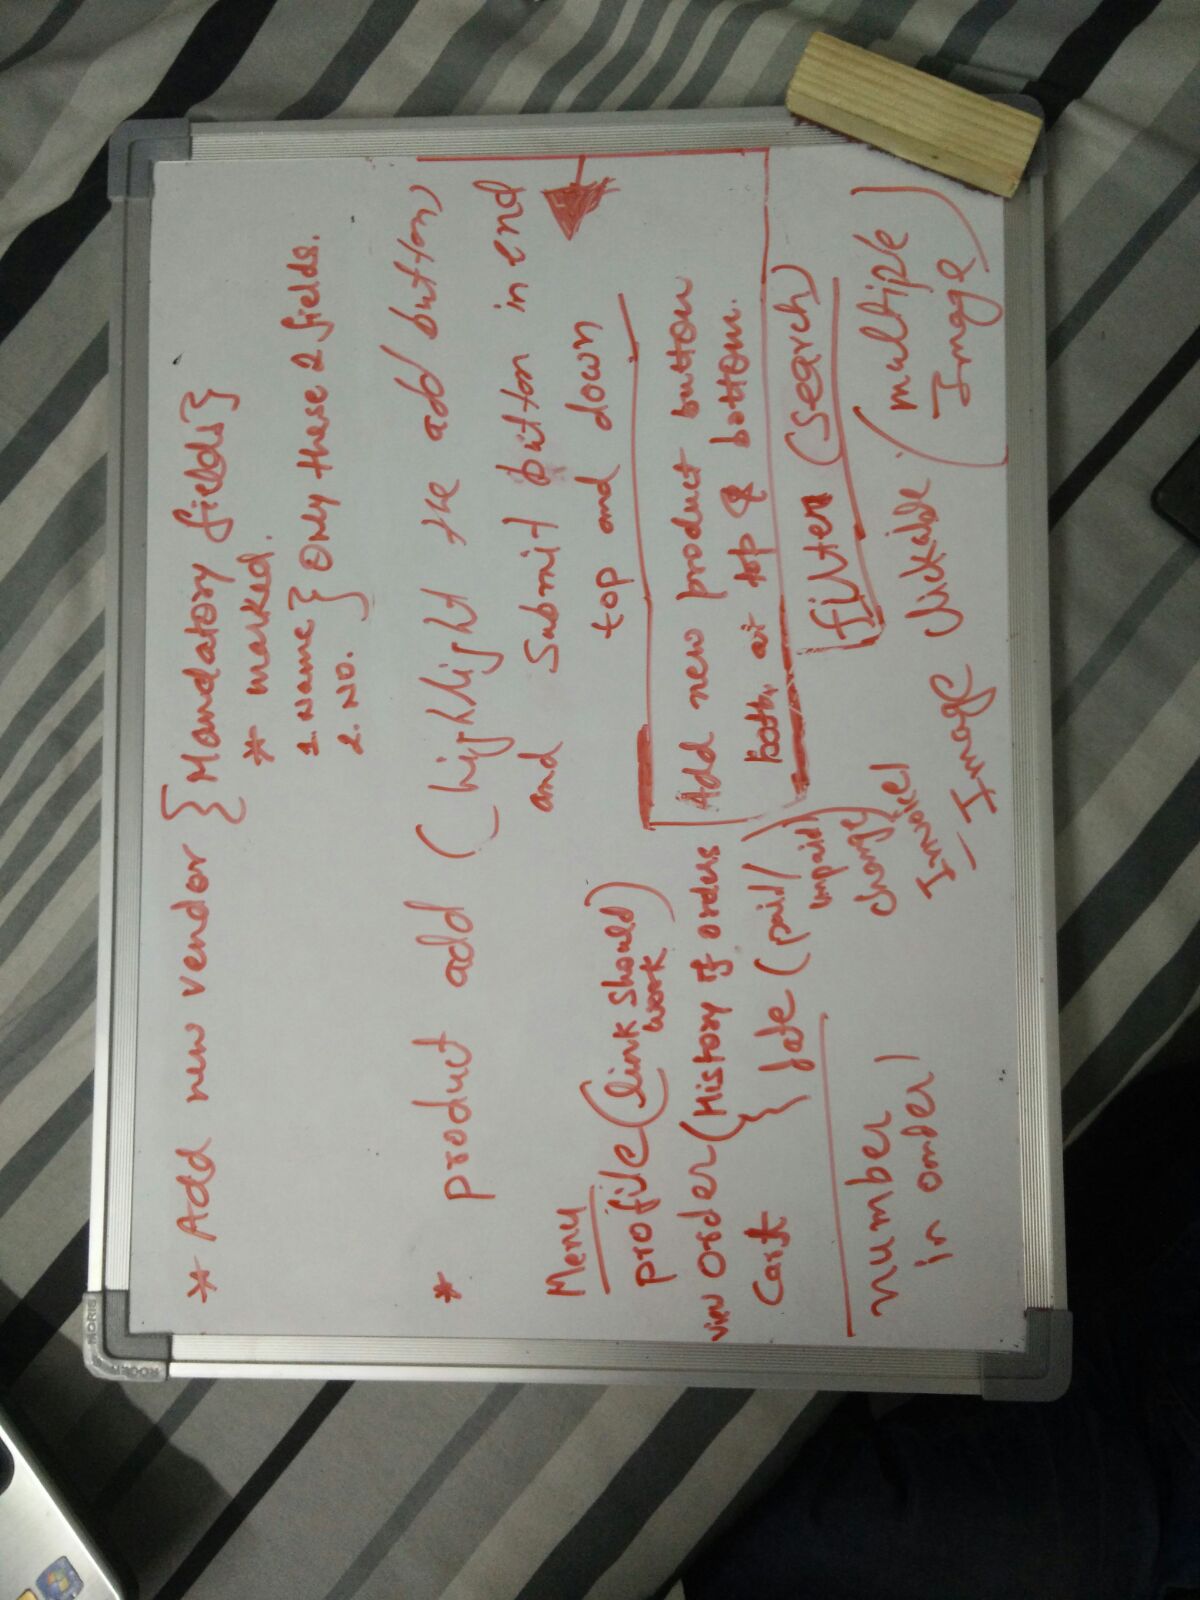 * Add new vendor { Mandatory fields }
* marked.
1. Name } Only these 2 fields.
2. No.
* product add ( highlight the add button
and Submit button in end )
top and down
Add new product button
both at top & bottom.
Filter (Search)
Menu
profile (link should
work)
view order ( History of orders
Cart } date ( paid/
unpaid )
change
Invoice
- Image clickable. ( multiple
Image )
number
in order
MORIS
ROCO